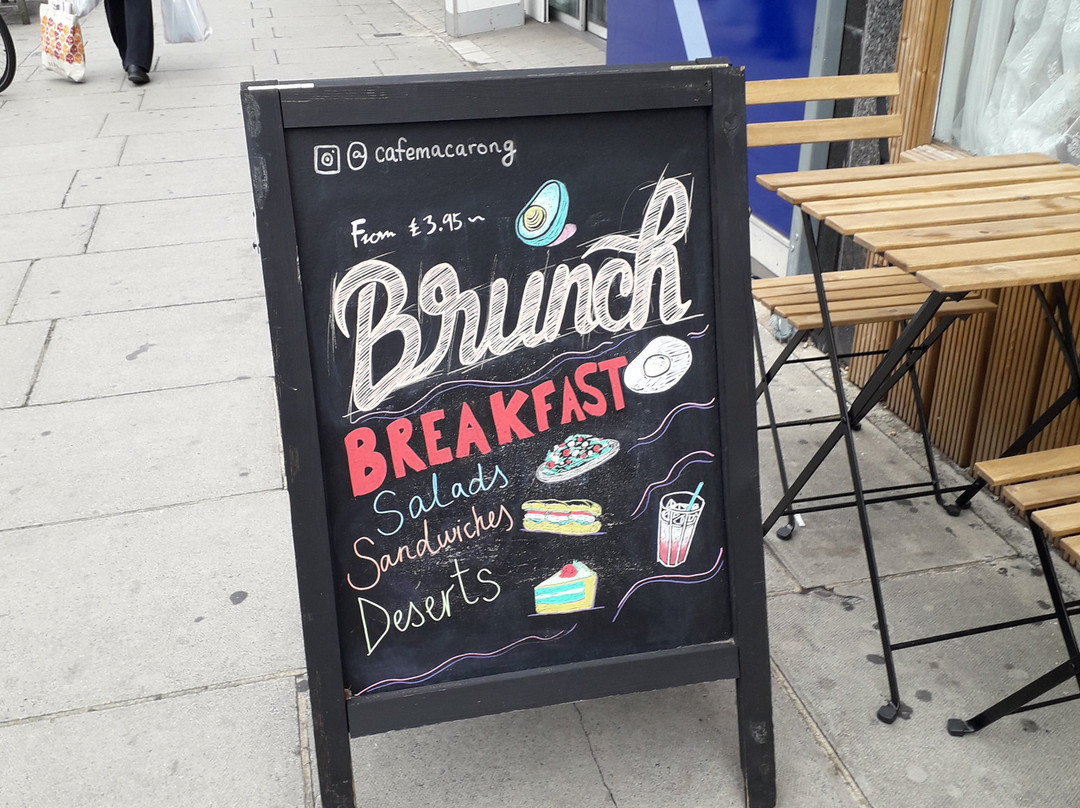 @ cafemacarong
From £3.95~
Brunch
BREAKFAST
Salads
Sandwiches
Deserts